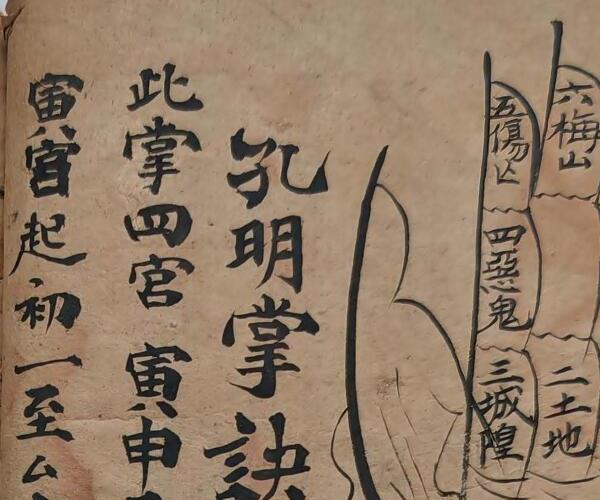 六梅山
二土地
五傷亾
四惡鬼
三城隍
孔明掌訣
此掌四宮 寅申
寅宮起初一至